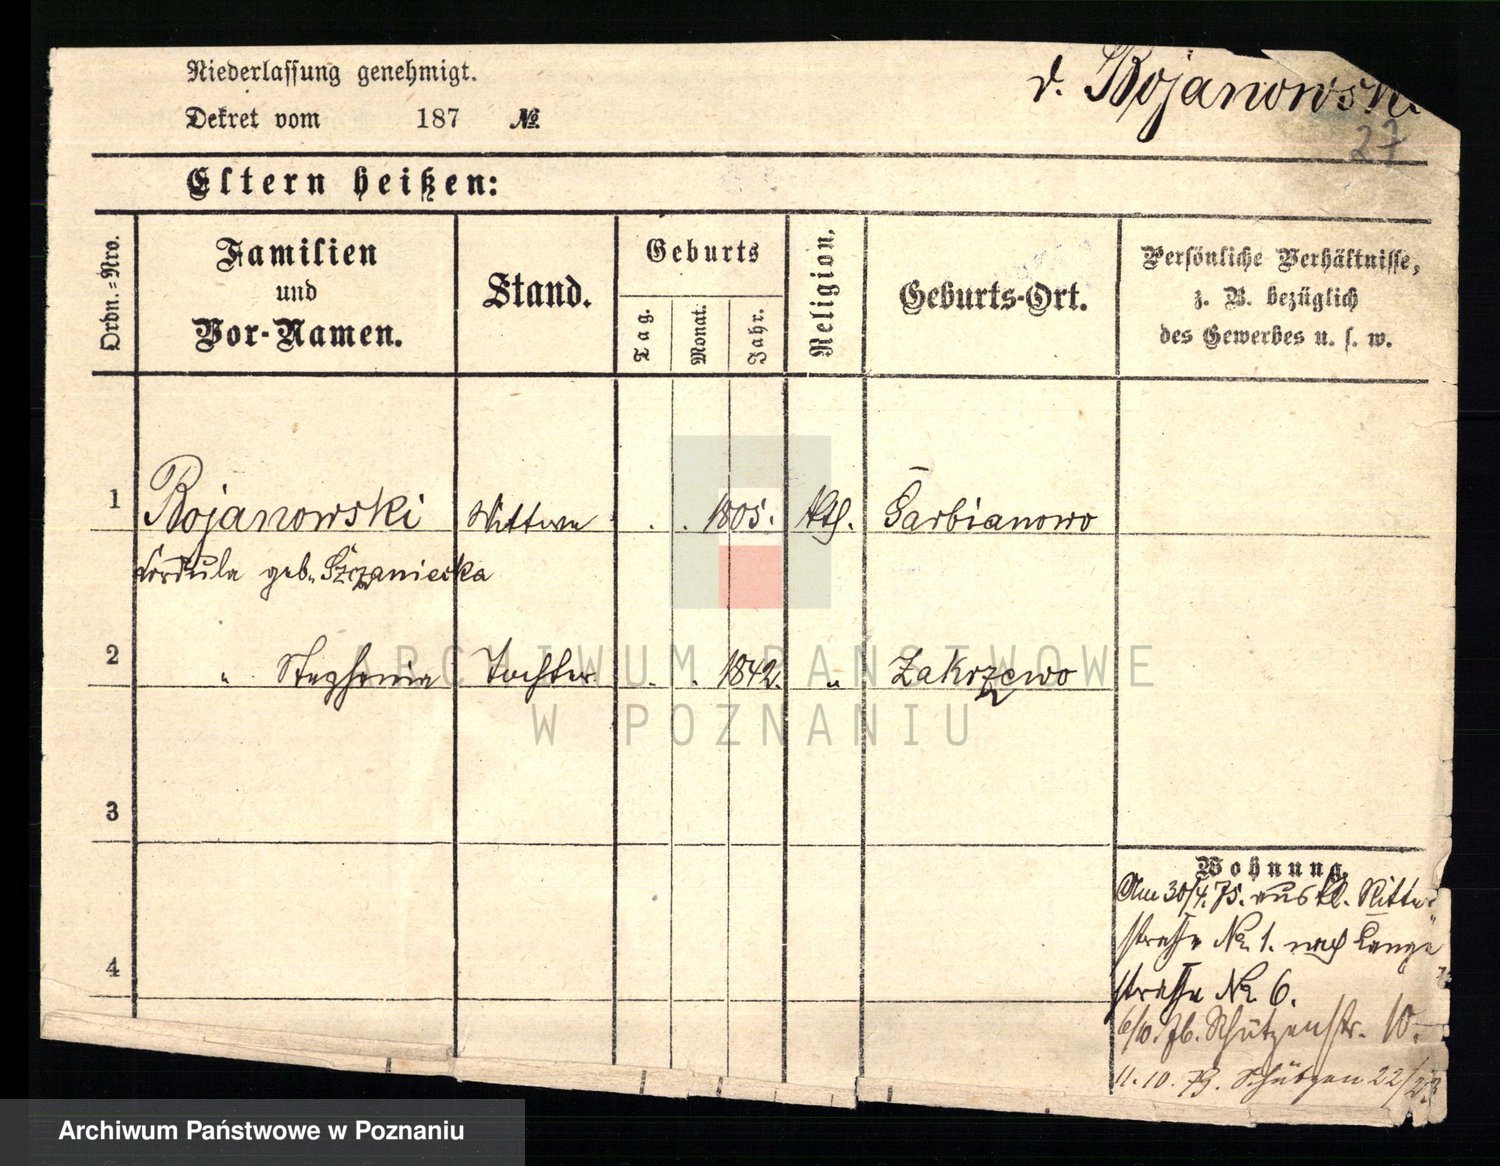 Niederlassung genehmigt.
v. Bojanowski
Dekret vom 187 №
27
Eltern heißen:
Ordn.-Nro.
Familien
und
Vor-Namen.
Stand.
Geburts
Tag.
Monat.
Jahr.
Religion.
Geburts-Ort.
Persönliche Verhältnisse,
z. B. bezüglich
des Gewerbes u. s. w.
1 Bojanowski Wittwe . . 1805. Kth. Garbianowo
Cordula geb. Szczaniecka
2 " Stephania Tochter . . 1842. " Zakrzewo
3
Wohnung.
Am 30/4. 75. aus kl. Ritter-
straße № 1. nach Lange
4
straße № 6.
Schützenstr. 10.
11. 10. 79. Schützen 22/23
ARCHIWUM PAŃSTWOWE
W POZNANIU
Archiwum Państwowe w Poznaniu